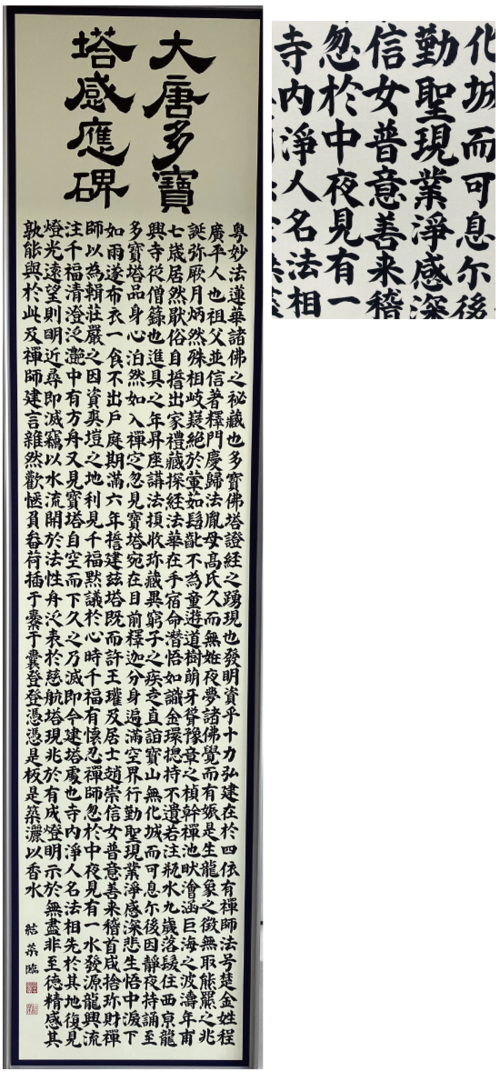 大唐多寶
塔感應碑
粵妙法蓮華諸佛之秘藏也多寶佛塔證經之踴現也發明資乎十力弘建在於四依有禪師法号楚金姓程
廣平人也祖父並信著釋門慶歸法胤母高氏久而無姙夜夢諸佛覺而有娠是生龍象之徵無取熊羆之兆
誕弥厥月炳然殊相岐嶷絕於葷茹髫齔不為童遊道樹萌牙聳豫章之楨幹禪池畎澮涵巨海之波濤年甫
七歲居然猒俗自誓出家禮藏探經法華在手宿命潛悟如識金環揔持不遺若注瓶水九歲落髮住西京龍
興寺從僧籙也進具之年昇座講法頓收珎藏異窮子之疾走直詣寶山無化城而可息尒後因靜夜持誦至
多寶塔品身心泊然如入禪定忽見寶塔宛在目前釋迦分身遍滿空界行勤聖現業淨感深悲生悟中淚下
如雨遂布衣一食不出戶庭期滿六年誓建茲塔既而許王瓘及居士趙崇信女普意善来稽首咸捨珎財禪
師以為輯莊嚴之因資爽塏之地利見千福默議於心時千福有懷忍禪師忽於中夜見有一水發源龍興流
注千福清澄泛灩中有方舟又見寶塔自空而下久之乃滅即今建塔處也寺内淨人名法相先於其地復見
燈光遠望則明近尋即滅竊以水流開於法性舟泛表於慈航塔現兆於有成燈明示於無盡非至德精感其
孰能與於此及禪師建言雜然歡愜負畚荷插于橐于囊登登憑憑是板是築灑以香水
臨
化城而可息尒後
勤聖現業淨感深
信女普意善来稽
忽於中夜見有一
寺内淨人名法相